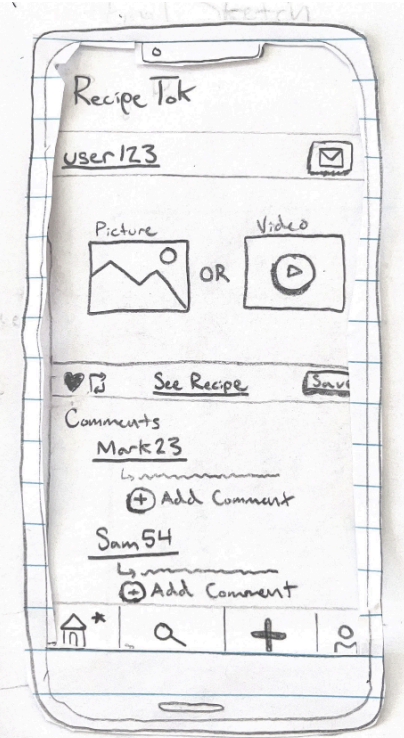 Sketch
Recipe Tok
user123
Picture
Video
OR
See Recipe
Save
Comments
Mark23
Add Comment
Sam54
Add Comment